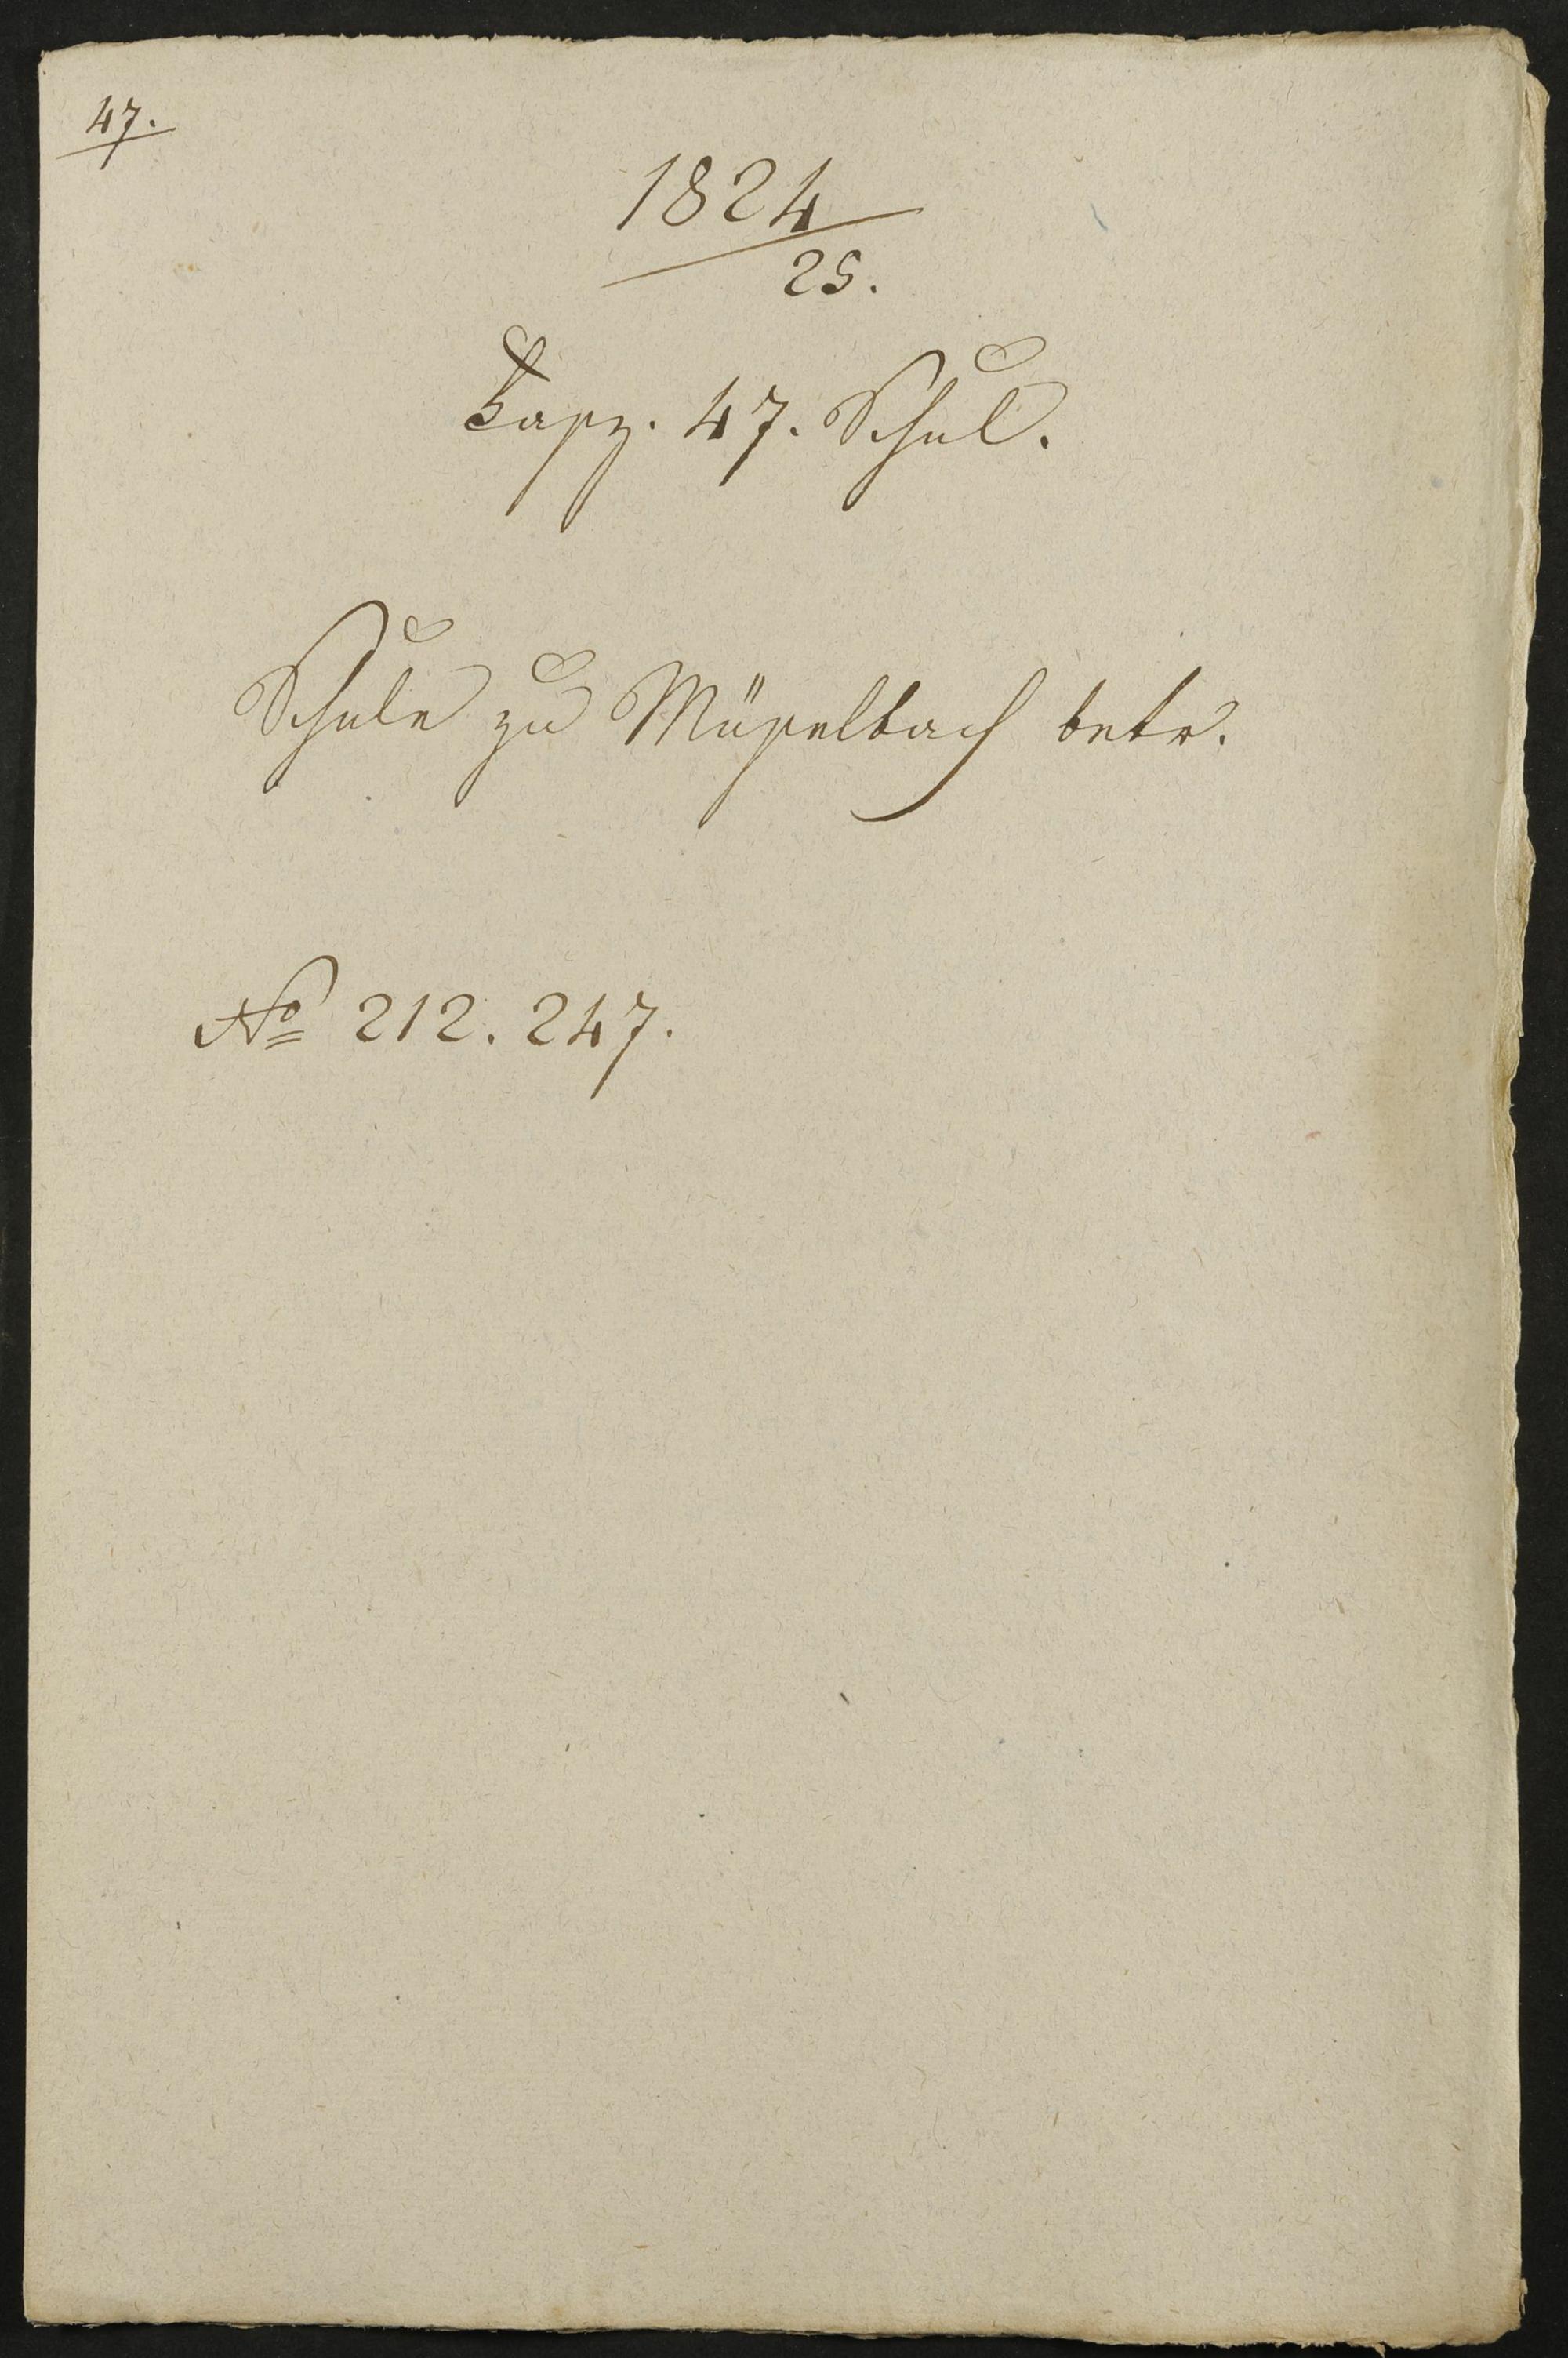 47.
1824
25.
Fasz. 47. Schul.
Schule zu Müselbach betr.
No 212. 247.